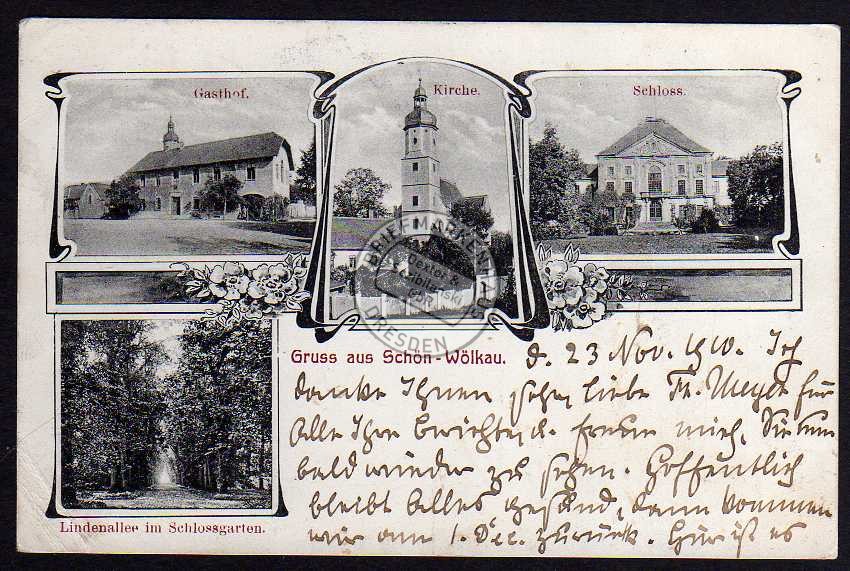 Gasthof.
Kirche.
Schloss.
BRIEFMARKEN
DRESDEN
Gruss aus Schön-Wölkau. d. 23 Nov. 1910. Ich
danke Ihnen sehr, liebe Fr. Meyer für
alle Ihre Berichte, u. freue mich, Sie nun
bald wieder zu sehen. Hoffentlich
bleibt Alles gesund, dann kommen
wir am 1. Dec. zurück. Hier ist es
Lindenallee im Schlossgarten.